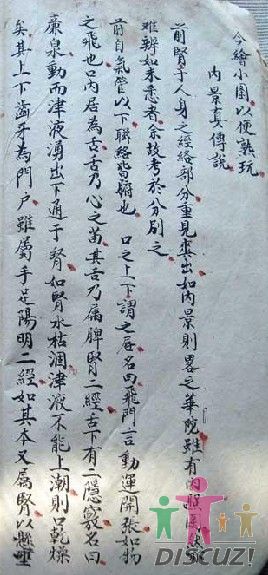 今繪小圖以便熟玩
內景真傳說
前賢于人身之經絡部分重見疊出如內景則畧之華陀雖有內照圖
难辨如未悉者余玆考於分別之
前自氣管以下聯絡皆腑也 口之上下謂之唇名曰飛門言動運開張如物
之飛也口內居為舌舌乃心之苗其舌乃屬脾腎二經舌下有二隱竅名曰
廉泉動而津液湧出下通于腎如腎水枯涸津液不能上潮則口乾燥
矣其上下齒牙為門戶雖屬手足陽明二經如其本又屬腎以
DISCUZ!